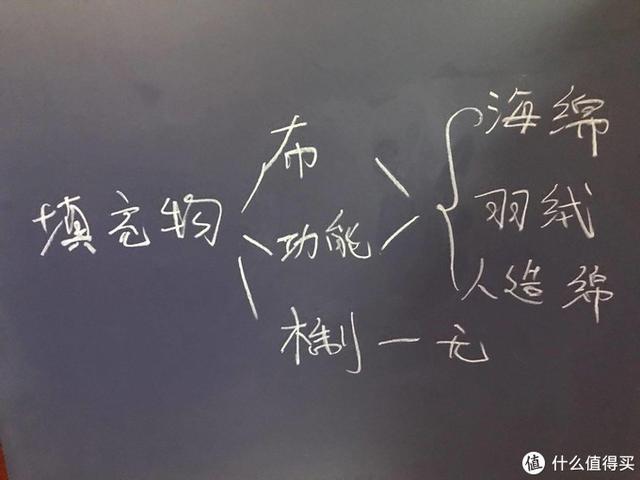 填充物
布
功能
木制一无
海绵
羽绒
人造绵
值 什么值得买